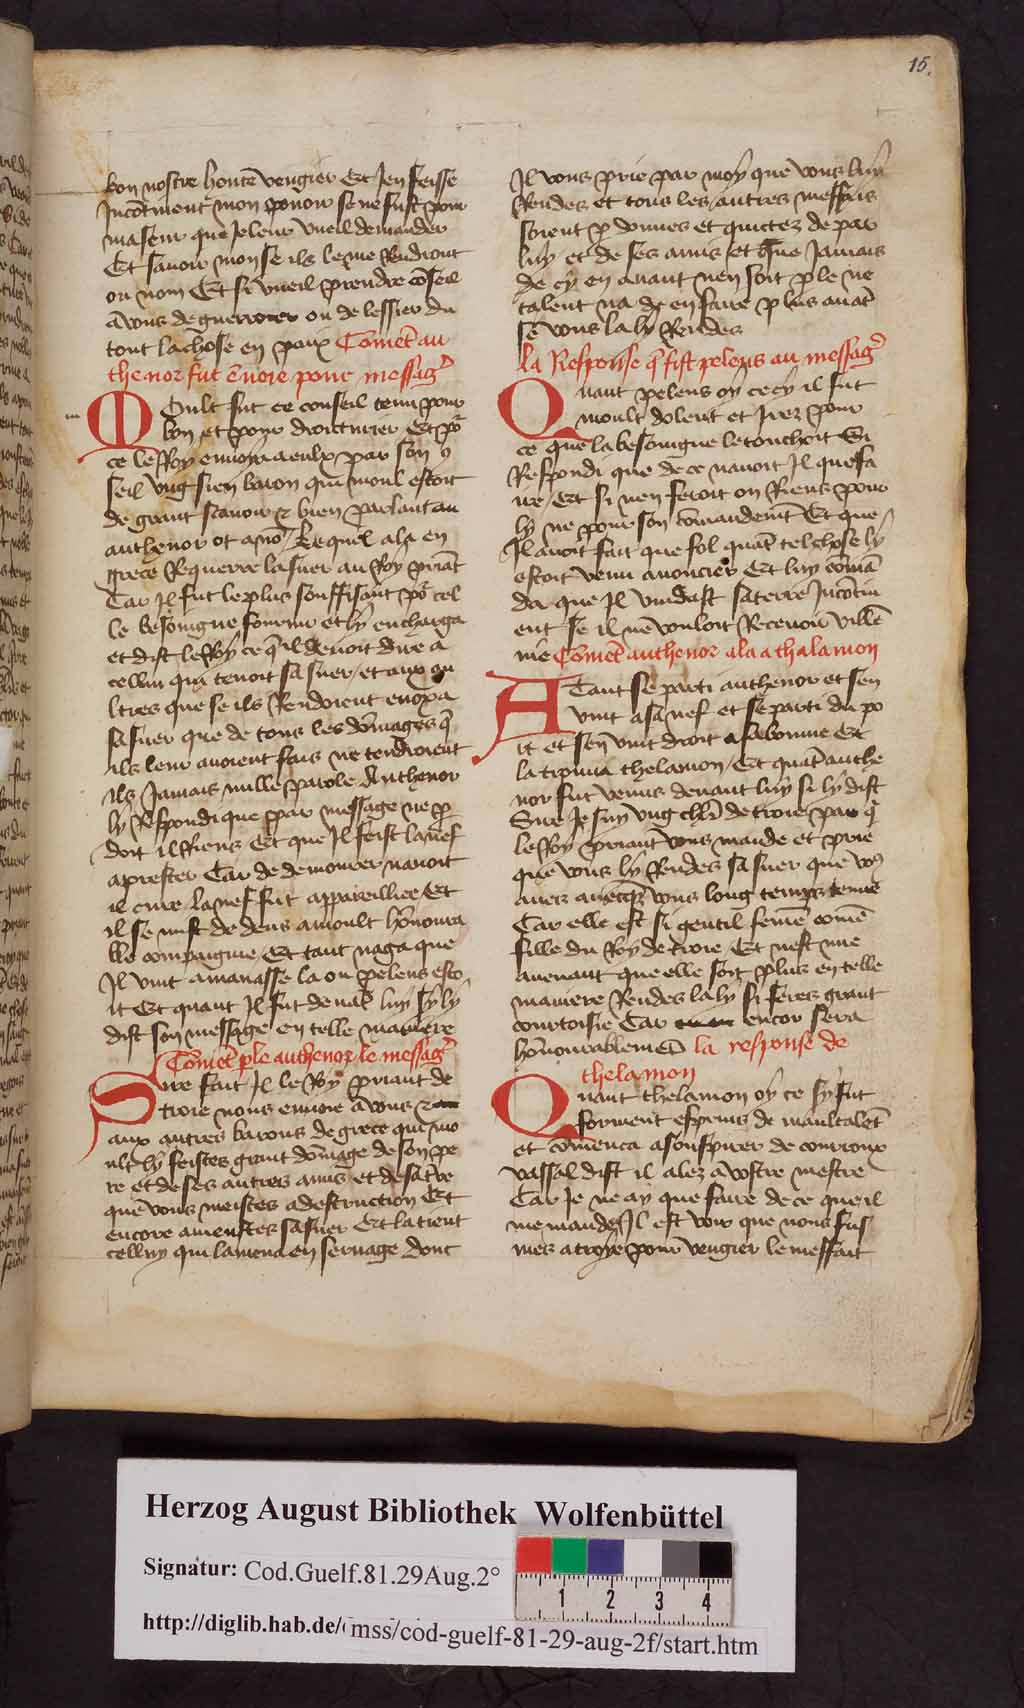 15.
bon nostre honte vengier Et Jen feisse
Incõtinent mon pouoir se ne fust pour
ma seur que Je leur vueil demander
Et sauoir mon se ilz le me Rendront
ou nom Et si vueil prendre cõseil
a vous de guerroier ou de lessier du
tout la chose en paix Cõmet au
thenor fut ẽuoie pour messag
Moult fut ce conseil tenu pour
bon et pour droicturier Et po
ce le Roy enuoya a eulx par son
seil vng sien baron qui moul estoit
de grant scauoir et bien parlant an
anthenor ot a nõ Lequel ala en
grece Requerre la suer au Roy priãt
Car Il fut le plus souffisant po cel
le besoingne fournir et ly encharga
et dist le Roy ce q il deuoit dire a
celluy qui tenoit sa suer / et aux au
ltres que se ils Rendoient
sa suer que de tous les dõmages q
ils leur auoient fais ne tendroient
ils Jamais nulle parole Anthenor
ly Respondi que par message ne p
doit il Riens Et que Il feist la nef
aprester Car de demourer nauoit
il cure / la nef fut appareilliee Et
il se mist dedens a moult hõnoura
ble compaignie Et tant naga que
Il vint a manasse la ou peleus esto
it Et quant Il fut deuãt luy Sy ly
dist son message en telle maniere
Cõmet ple anthenor le messag
Sire fait Il le Roy priant de
troie nous enuoie a vous
aux autres barons de grece qui mo
ult ly feistes grant dõmage de son pe
re et de ses autres amis et de sa tre
que vous meistes a destruction Et
encore amenstes sa suer Et la tient
celluy qui lamena en seruage dont
Il vous prie par moy que vous luy
Rendes et tous les autres meffais
soient p donnes et quictez de par
luy et de ses amis et que Jamais
de cy en auant nen soit ple ne
talent na de en faire plus auãt
se vous la ly Rendes
la Response q fist peleus au messag
Quant peleus oy cecy il fut
moult dolent et Irez pour
ce que la besoingne le touchoit Si
Respondi que de ce nauoit Il que fa
ire / Et si nen feroit on Riens pour
ly ne pour son cõmandemẽt Et que
Il auoit fait que fol quãt tel chose ly
estoit venu anoncier Et luy cõmã
da que Il vuidast sa terre Incõtin
ent se il ne vouloit Receuoir villẽ
nie Cõmet anthenor ala a thalamon
Atant se parti anthenor et sen
vint a sa nef et se parti du po
rt et sen vint droit a salebonine Et
la trouua thelamon / Et quãt anthe
nor fut venus deuant luy si ly dist
Sire Je suy vng chlr de troie par q
le Roy priant vous mande et prie
que vous ly Rendes sa suer que vo9
auez auecqz vous long temps tenue
Car elle est si gentil femẽ cõmẽ
fille du Roy de troie / Et nest mie
auenant que elle soit plus en telle
maniere Rendes la ly si feres grant
courtoisie Car encor sera
hõnourablemẽt la response de
thelamon
Quant thelamon oy ce sy fut
forment espris de maultalẽt
et cõmenca a souspirer de couroux
vassal dist il alez a vostre mestre
Car Je ne ay que faire de ce que il
me mande Il est voir que nous fus
mes a troye pour vengier le meffait
Herzog August Bibliothek Wolfenbüttel
Signatur: Cod.Guelf.81.29Aug.2°
http://diglib.hab.de/ mss/cod-guelf-81-29-aug-2f/start.htm
1 2 3 4